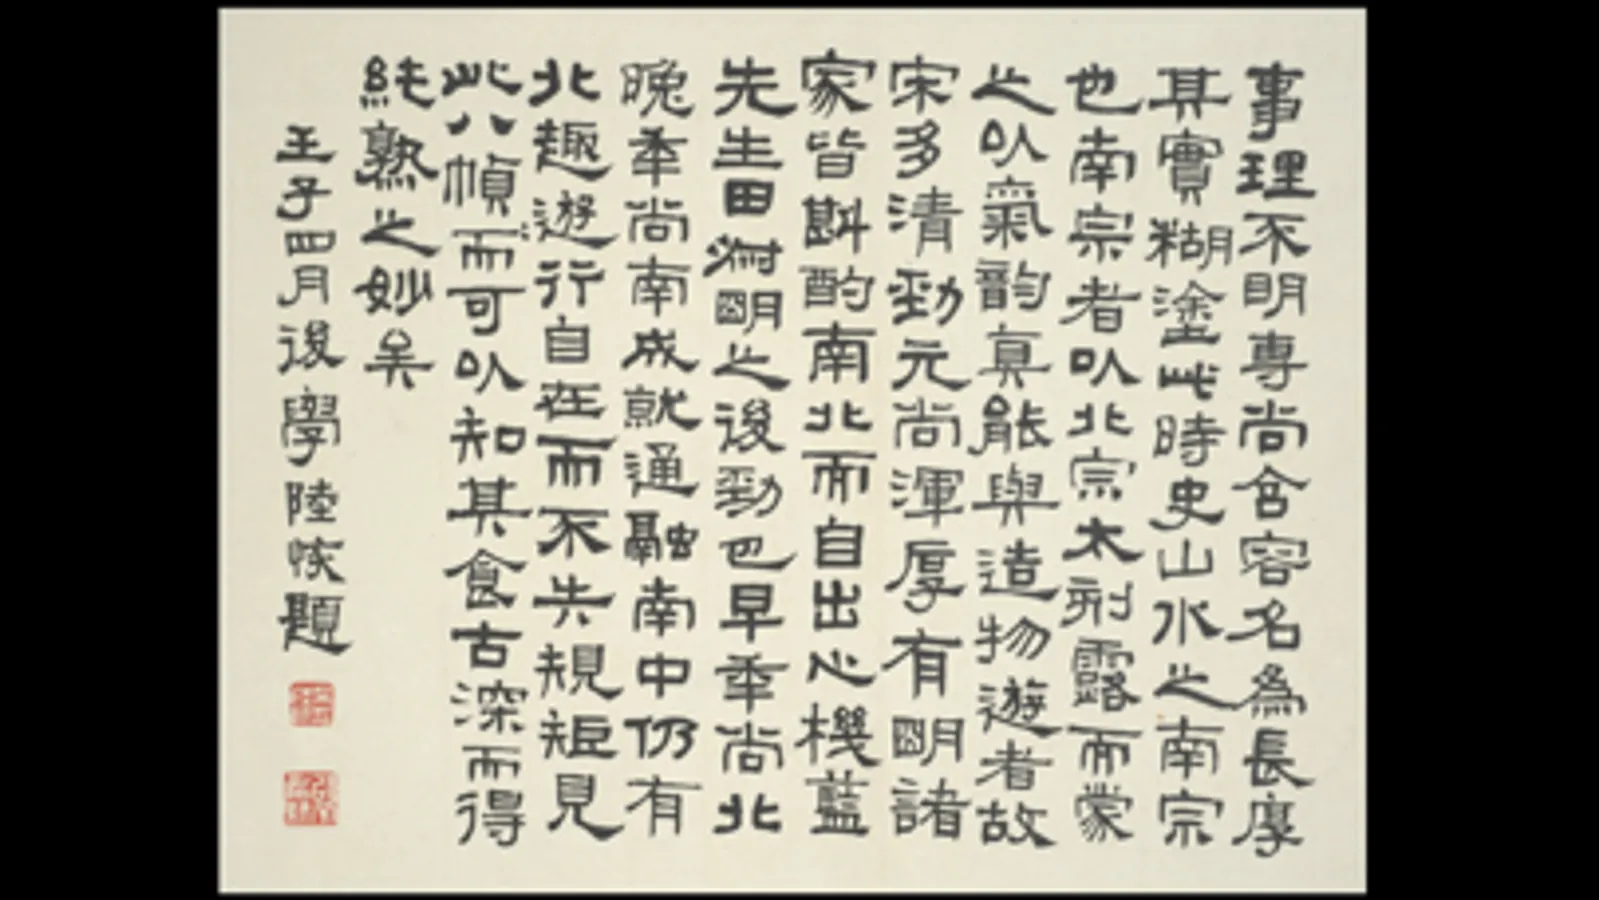 事理不明專尚含容名為長厚
其實糊塗此時史山水之南宗
也南宗者以北宗太刻露而蒙
之以氣韵真能與造物遊者故
宋多清勁元尚渾厚有明諸
家皆斟酌南北而自出心機藍
先生田㳙明之後勁也早年尚北
晚年尚南成就通融南中仍有
北趣遊行自在而不失規矩見
此八幀而可以知其食古深而得
純熟之妙矣
壬子四月後學陸恢題